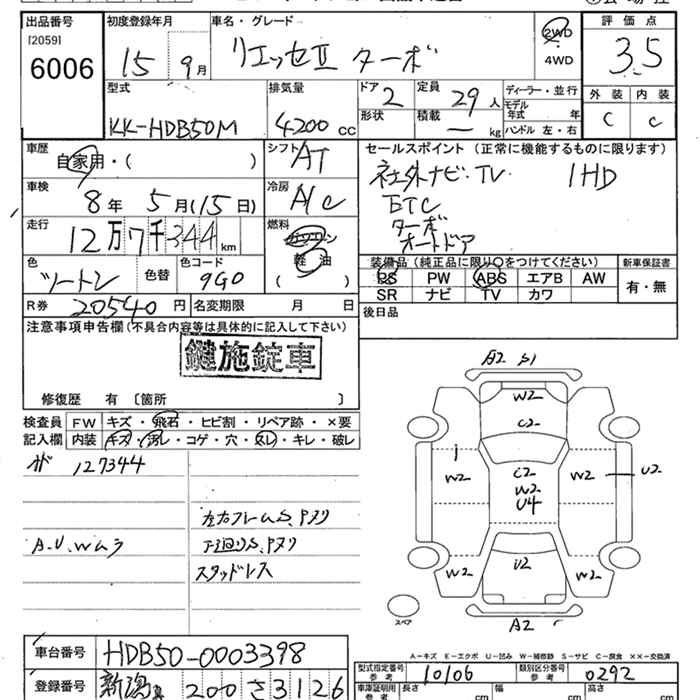 出品番号
[2059]
6006
初度登録年月
15 9月
車名・グレード
リエッセⅡ ターボ
2WD
4WD
評価点
3.5
外装 内装
C C
型式
KK-HDB50M
排気量
4200 CC
ドア
2
形状
定員
29人
積載
― kg
ディーラー・並行
モデル年式 年
ハンドル 左・右
車歴
自家用・( )
シフト
AT
車検
8年5月(15日)
冷房
A/C
走行
12万7千344km
燃料
ガソリン
軽油
( )
色
ツートン 色替
色コード
9G0
R券 20540円
名変期限 月 日
セールスポイント(正常に機能するものに限ります)
社外ナビ・TV 1HD
ETC
ターボ
オートドア
装備品(純正品に限り〇をつけてください)
PS PW ABS エアB AW
SR ナビ TV カワ
新車保証書
有・無
後日品
注意事項申告欄(不具合内容等は具体的に記入して下さい)
鍵施錠車
修復歴 有〔箇所 〕
検査員記入欄
FW キズ・飛石・ヒビ割・リペア跡・×要
内装 キズ・汚レ・コゲ・穴・スレ・キレ・破レ
127344
左右フレームS、Pヌリ
A.U.Wムラ
下廻りS、Pヌリ
スタッドレス
A2 S1
W2
C2
W2 C2 W2 U2
W2
U4
W2 U2 W2
A2
スペア
A-キズ E-エクボ U-凹み W-補修跡 S-サビ C-腐食 ××-交換済
車台番号 HDB50-0003398
型式指定番号 参考 10106
類別区分番号 参考 0292
登録番号 新潟 200 さ 3126
車庫証明用 参考
長さ cm
幅 cm
高さ cm